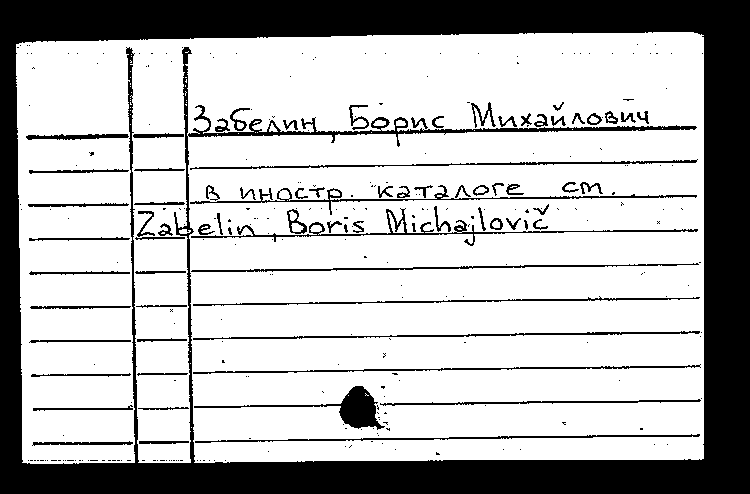 Забелин, Борис Михайлович
в иностр. каталоге см.
Zabelin, Boris Michajlovič